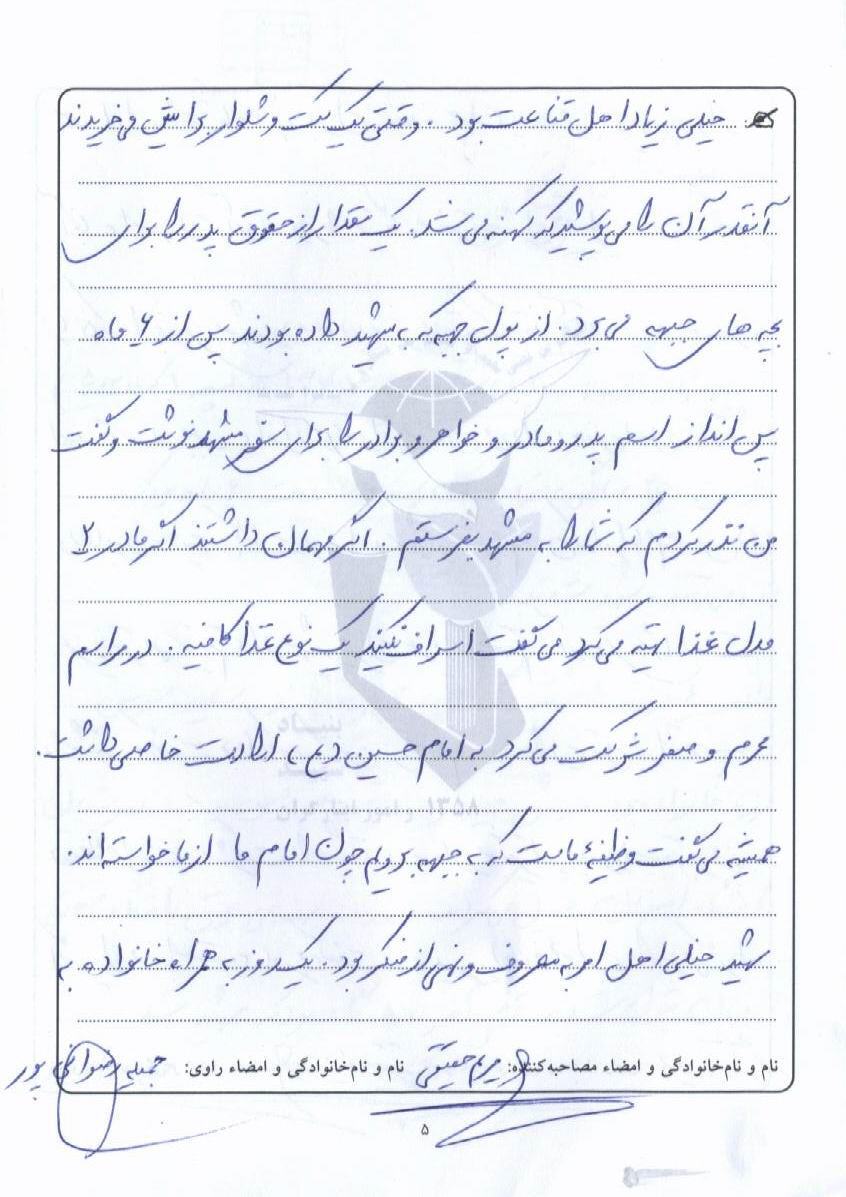 خیلی زیاد اهل قناعت بود. وقتی یک کت و شلوار برایش می‌خریدند
آنقدر آن را می‌پوشید که کهنه می‌شد. یک مقدار از حقوق پدر را برای
بچه های جبهه می‌برد. از پول جبهه که به شهید داده بودند پس از ۶ ماه
پس انداز اسم پدر و مادر و خواهر و برادر را برای سفر مشهد نوشت و گفت
من نذر کردم که شما را به مشهد بفرستم. اگر مهمان داشتند اگر مادر ۲
مدل غذا تهیه می‌کرد می‌گفت اسراف نکنید یک نوع غذا کافیه. در مراسم
محرم و صفر شرکت می‌کرد به امام حسین (ع) ارادت خاصی داشت.
همیشه می‌گفت وظیفهٔ ماست که به جبهه برویم چون امام ما از ما خواسته‌اند.
شهید خیلی اهل امر به معروف و نهی از منکر بود. یک روز به همراه خانواده به
نام و نام‌خانوادگی و امضاء مصاحبه‌کننده: مریم حقیقی نام و نام‌خانوادگی و امضاء راوی: جمیله رضوانی پور
۵
بنیاد
۱۳۵۸ و امور ایثارگران